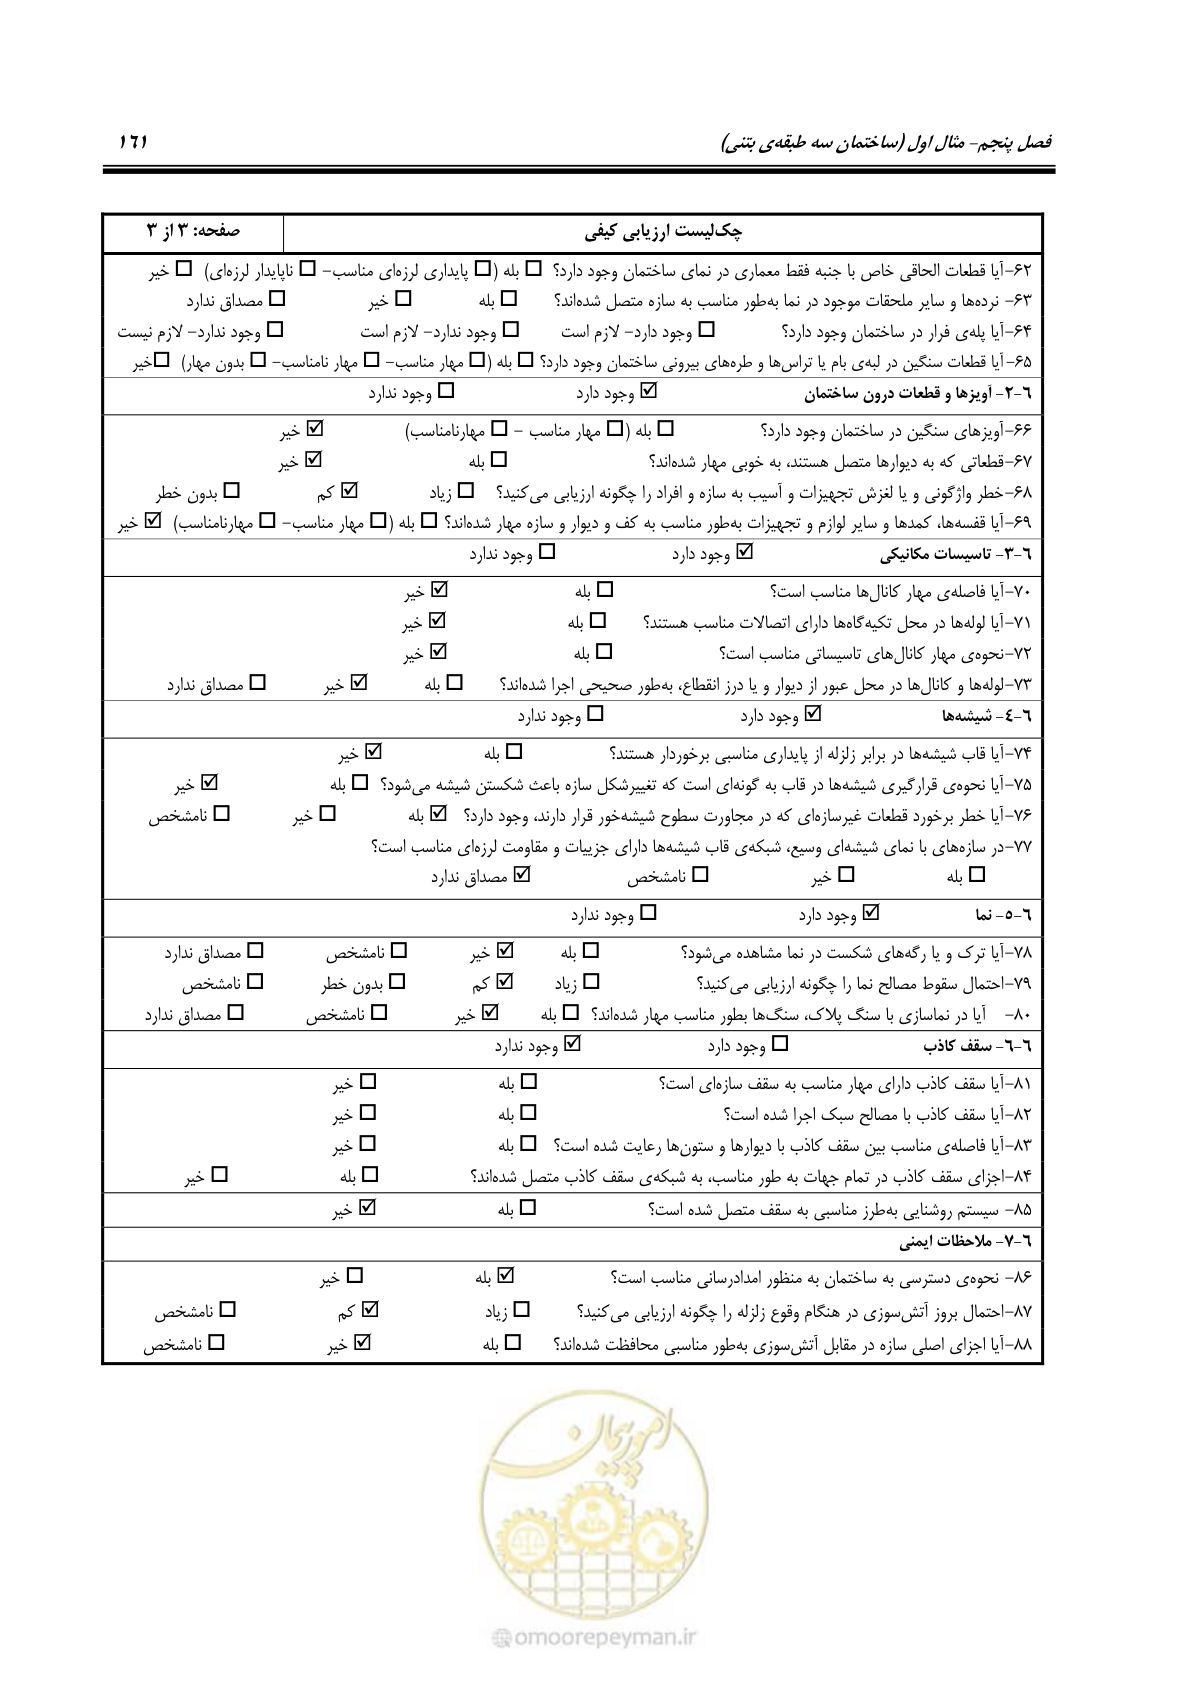 فصل پنجم- مثال اول (ساختمان سه طبقه‌ی بتنی) ۱۶۱
چک‌لیست ارزیابی کیفی صفحه: ۳ از ۳
۶۲-آیا قطعات الحاقی خاص با جنبه فقط معماری در نمای ساختمان وجود دارد؟ ☐ بله (☐ پایداری لرزه‌ای مناسب- ☐ ناپایدار لرزه‌ای) ☐ خیر
۶۳- نرده‌ها و سایر ملحقات موجود در نما به‌طور مناسب به سازه متصل شده‌اند؟ ☐ بله ☐ خیر ☐ مصداق ندارد
۶۴-آیا پله‌ی فرار در ساختمان وجود دارد؟ ☐ وجود دارد- لازم است ☐ وجود ندارد- لازم است ☐ وجود ندارد- لازم نیست
۶۵-آیا قطعات سنگین در لبه‌ی بام یا تراس‌ها و طره‌های بیرونی ساختمان وجود دارد؟ ☐ بله (☐ مهار مناسب- ☐ مهار نامناسب- ☐ بدون مهار) ☐خیر
۶-۲- آویزها و قطعات درون ساختمان ☑ وجود دارد ☐ وجود ندارد
۶۶-آویزهای سنگین در ساختمان وجود دارد؟ ☐ بله (☐ مهار مناسب - ☐ مهارنامناسب) ☑ خیر
۶۷-قطعاتی که به دیوارها متصل هستند، به خوبی مهار شده‌اند؟ ☐ بله ☑ خیر
۶۸-خطر واژگونی و یا لغزش تجهیزات و آسیب به سازه و افراد را چگونه ارزیابی می‌کنید؟ ☐ زیاد ☑ کم ☐ بدون خطر
۶۹-آیا قفسه‌ها، کمدها و سایر لوازم و تجهیزات به‌طور مناسب به کف و دیوار و سازه مهار شده‌اند؟ ☐ بله (☐ مهار مناسب- ☐ مهارنامناسب) ☑ خیر
۶-۳- تاسیسات مکانیکی ☑ وجود دارد ☐ وجود ندارد
۷۰-آیا فاصله‌ی مهار کانال‌ها مناسب است؟ ☐ بله ☑ خیر
۷۱-آیا لوله‌ها در محل تکیه‌گاه‌ها دارای اتصالات مناسب هستند؟ ☐ بله ☑ خیر
۷۲-نحوه‌ی مهار کانال‌های تاسیساتی مناسب است؟ ☐ بله ☑ خیر
۷۳-لوله‌ها و کانال‌ها در محل عبور از دیوار و یا درز انقطاع، به‌طور صحیحی اجرا شده‌اند؟ ☐ بله ☑ خیر ☐ مصداق ندارد
۶-۴- شیشه‌ها ☑ وجود دارد ☐ وجود ندارد
۷۴-آیا قاب شیشه‌ها در برابر زلزله از پایداری مناسبی برخوردار هستند؟ ☐ بله ☑ خیر
۷۵-آیا نحوه‌ی قرارگیری شیشه‌ها در قاب به گونه‌ای است که تغییرشکل سازه باعث شکستن شیشه می‌شود؟ ☐ بله ☑ خیر
۷۶-آیا خطر برخورد قطعات غیرسازه‌ای که در مجاورت سطوح شیشه‌خور قرار دارند، وجود دارد؟ ☑ بله ☐ خیر ☐ نامشخص
۷۷-در سازه‌های با نمای شیشه‌ای وسیع، شبکه‌ی قاب شیشه‌ها دارای جزییات و مقاومت لرزه‌ای مناسب است؟
☐ بله ☐ خیر ☐ نامشخص ☑ مصداق ندارد
۶-۵- نما ☑ وجود دارد ☐ وجود ندارد
۷۸-آیا ترک و یا رگه‌های شکست در نما مشاهده می‌شود؟ ☐ بله ☑ خیر ☐ نامشخص ☐ مصداق ندارد
۷۹-احتمال سقوط مصالح نما را چگونه ارزیابی می‌کنید؟ ☐ زیاد ☑ کم ☐ بدون خطر ☐ نامشخص
۸۰- آیا در نماسازی با سنگ پلاک، سنگ‌ها بطور مناسب مهار شده‌اند؟ ☐ بله ☑ خیر ☐ نامشخص ☐ مصداق ندارد
۶-۶- سقف کاذب ☐ وجود دارد ☑ وجود ندارد
۸۱-آیا سقف کاذب دارای مهار مناسب به سقف سازه‌ای است؟ ☐ بله ☐ خیر
۸۲-آیا سقف کاذب با مصالح سبک اجرا شده است؟ ☐ بله ☐ خیر
۸۳-آیا فاصله‌ی مناسب بین سقف کاذب با دیوارها و ستون‌ها رعایت شده است؟ ☐ بله ☐ خیر
۸۴-اجزای سقف کاذب در تمام جهات به طور مناسب، به شبکه‌ی سقف کاذب متصل شده‌اند؟ ☐ بله ☐ خیر
۸۵- سیستم روشنایی به‌طرز مناسبی به سقف متصل شده است؟ ☐ بله ☑ خیر
۶-۷- ملاحظات ایمنی
۸۶- نحوه‌ی دسترسی به ساختمان به منظور امدادرسانی مناسب است؟ ☑ بله ☐ خیر
۸۷-احتمال بروز آتش‌سوزی در هنگام وقوع زلزله را چگونه ارزیابی می‌کنید؟ ☐ زیاد ☑ کم ☐ نامشخص
۸۸-آیا اجزای اصلی سازه در مقابل آتش‌سوزی به‌طور مناسبی محافظت شده‌اند؟ ☐ بله ☑ خیر ☐ نامشخص
امور پیمان
omoorepeyman.ir